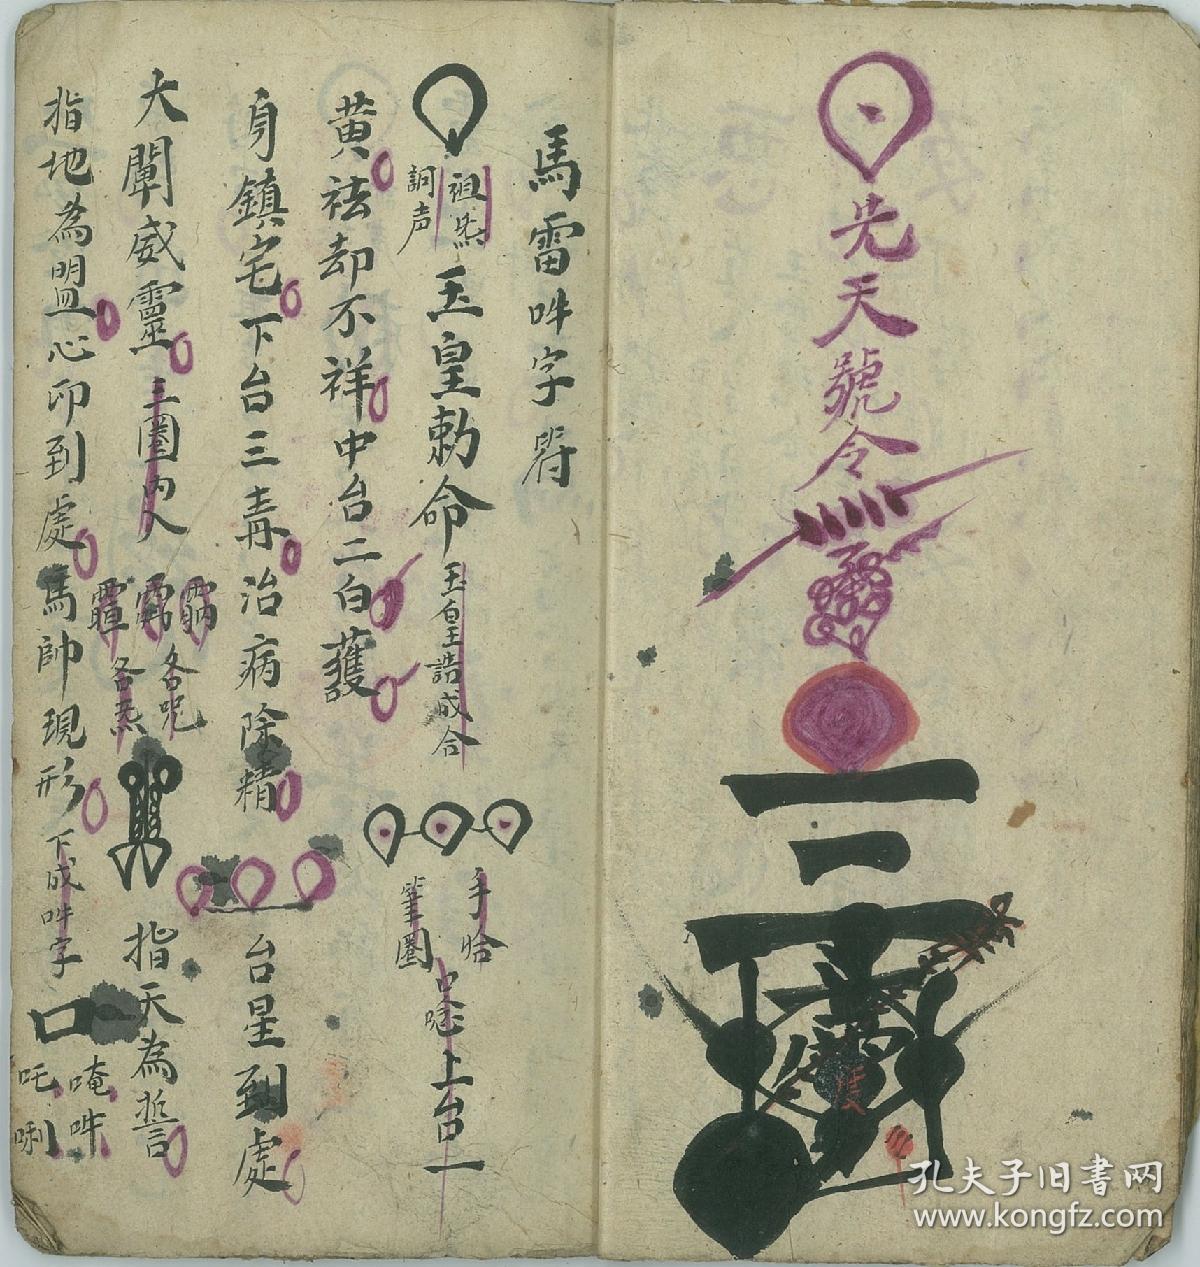 先天號令
馬雷吽字符
祖炁
詞声
玉皇勅命
玉皇誥成合
手恰
筆圈
口唸上台一
黄祛却不祥中台二白護
身鎮宅下台三青治病除精
台星到處
大闡威靈
三圈內入
各呪
各炁
指天為誓
指地為盟心印到處馬帥現形
下成吽字
口
唵吽
吒唎
孔夫子旧書网
www.kongfz.com